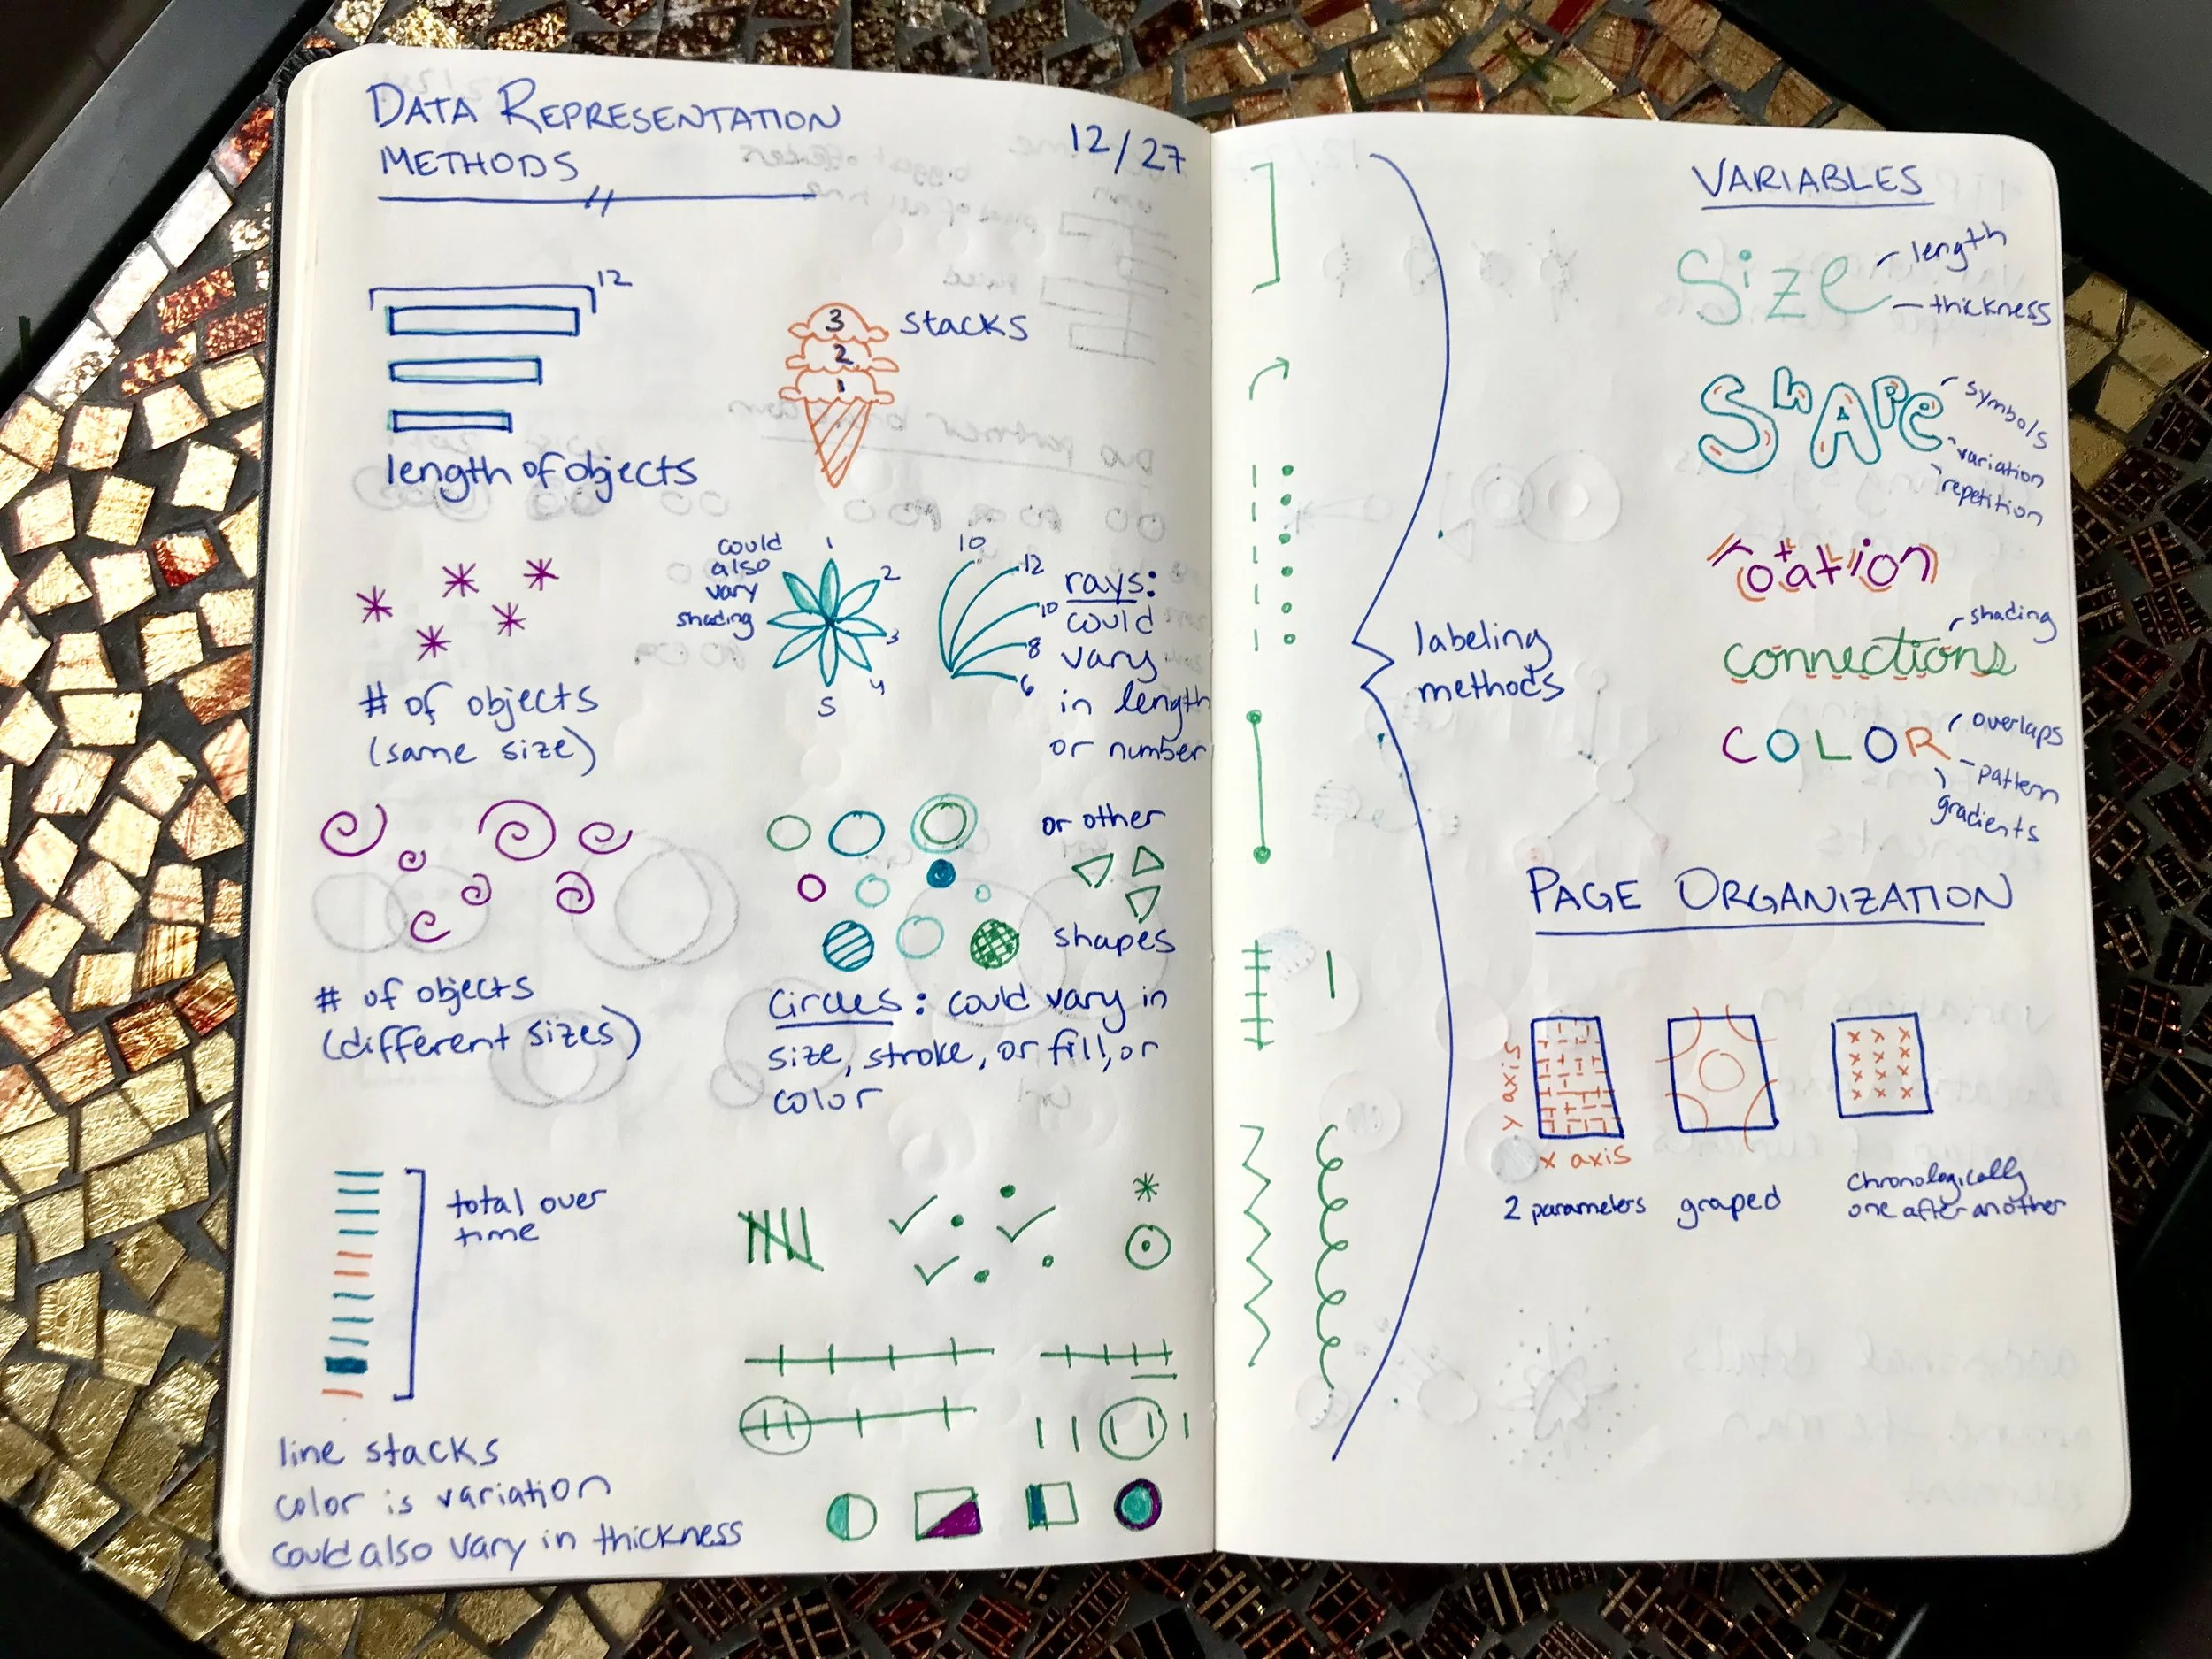 DATA REPRESENTATION
METHODS
12/27
12
length of objects
3
2
1
stacks
# of objects
(same size)
could
also
vary
shading
1
2
3
4
5
10
12
10
8
6
rays:
could
vary
in length
or number
# of objects
(different sizes)
or other
shapes
Circles: could vary in
size, stroke, or fill, or
color
total over
time
line stacks
color is variation
could also vary in thickness
labeling
methods
VARIABLES
Size
length
thickness
SHAPe
symbols
variation
repetition
rotation
connections
shading
COLOR
overlaps
pattern
gradients
PAGE ORGANIZATION
Y axis
x axis
2 parameters
graped
chronologically
one after another